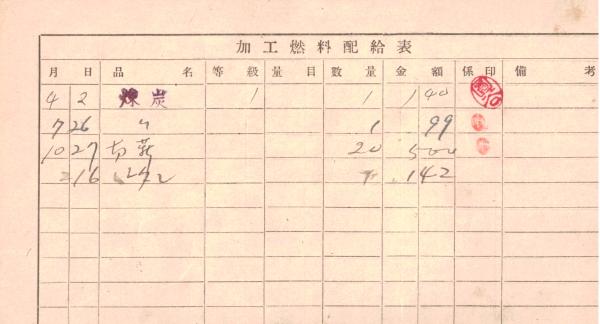 加工燃料配給表
月 日 品名 等級 量目 数量 金額 係印 備考
4 2 煉炭 1 1 140
7 26 〃 1 99
10 27 薪 20 500
2 16 142